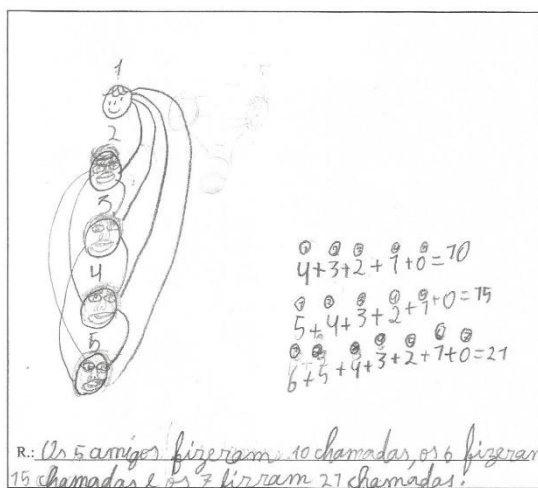 1
2
3
4
5
4+3+2+1+0=10
5+4+3+2+1+0=15
6+5+4+3+2+1+0=21
R.: Os 5 amigos fizeram 10 chamadas, os 6 fizeram
15 chamadas e os 7 firram 21 chamadas.